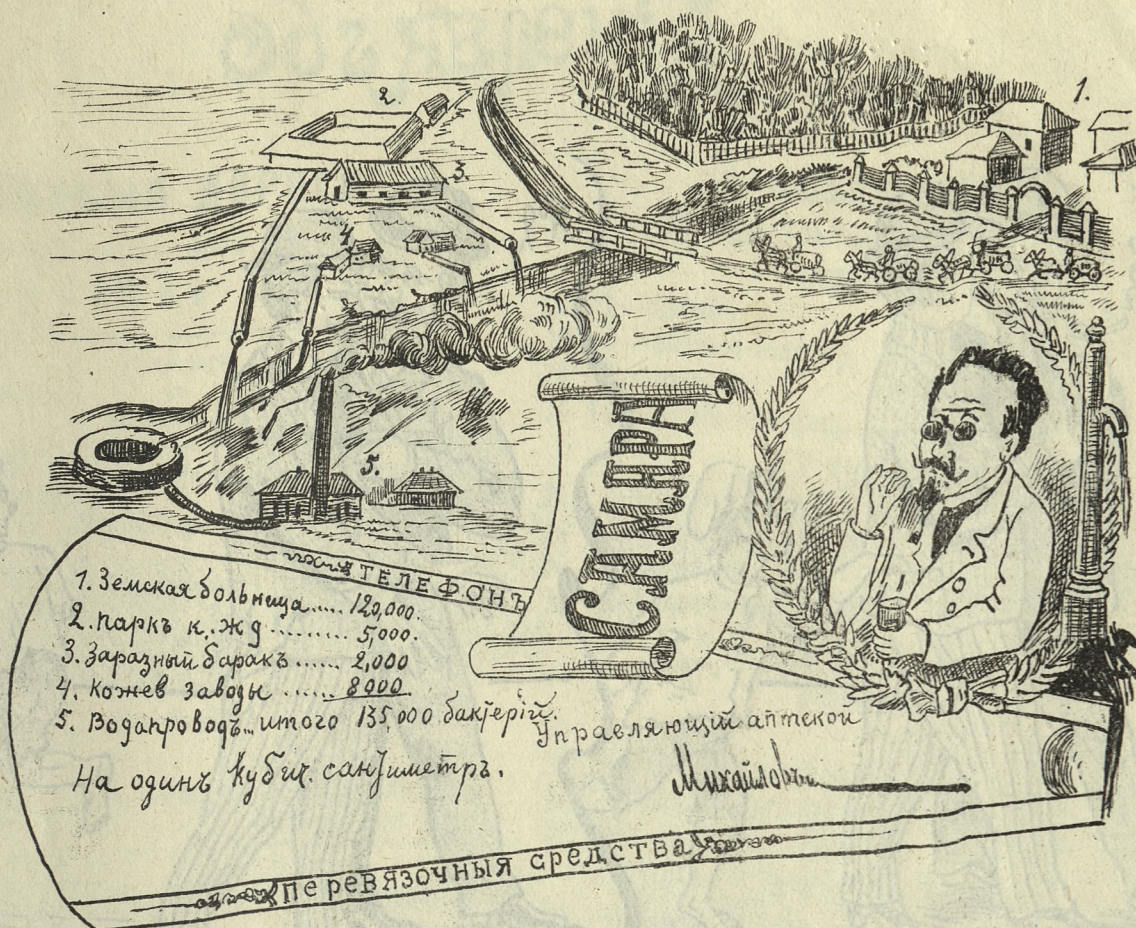 2.
1.
3.
4
5.
САМАРА
ТЕЛЕФОНЪ
1. Земская больница..... 120,000.
2. паркъ к. ж д ......... 5,000.
3. Заразный баракъ ...... 2,000
4. Кожев заводы ...... 8000.
5. Водапроводъ... итого 135,000 бактерій.
На одинъ кубич. сантиметръ.
Управляющій аптекой
Михайловъ
Перевязочныя средства